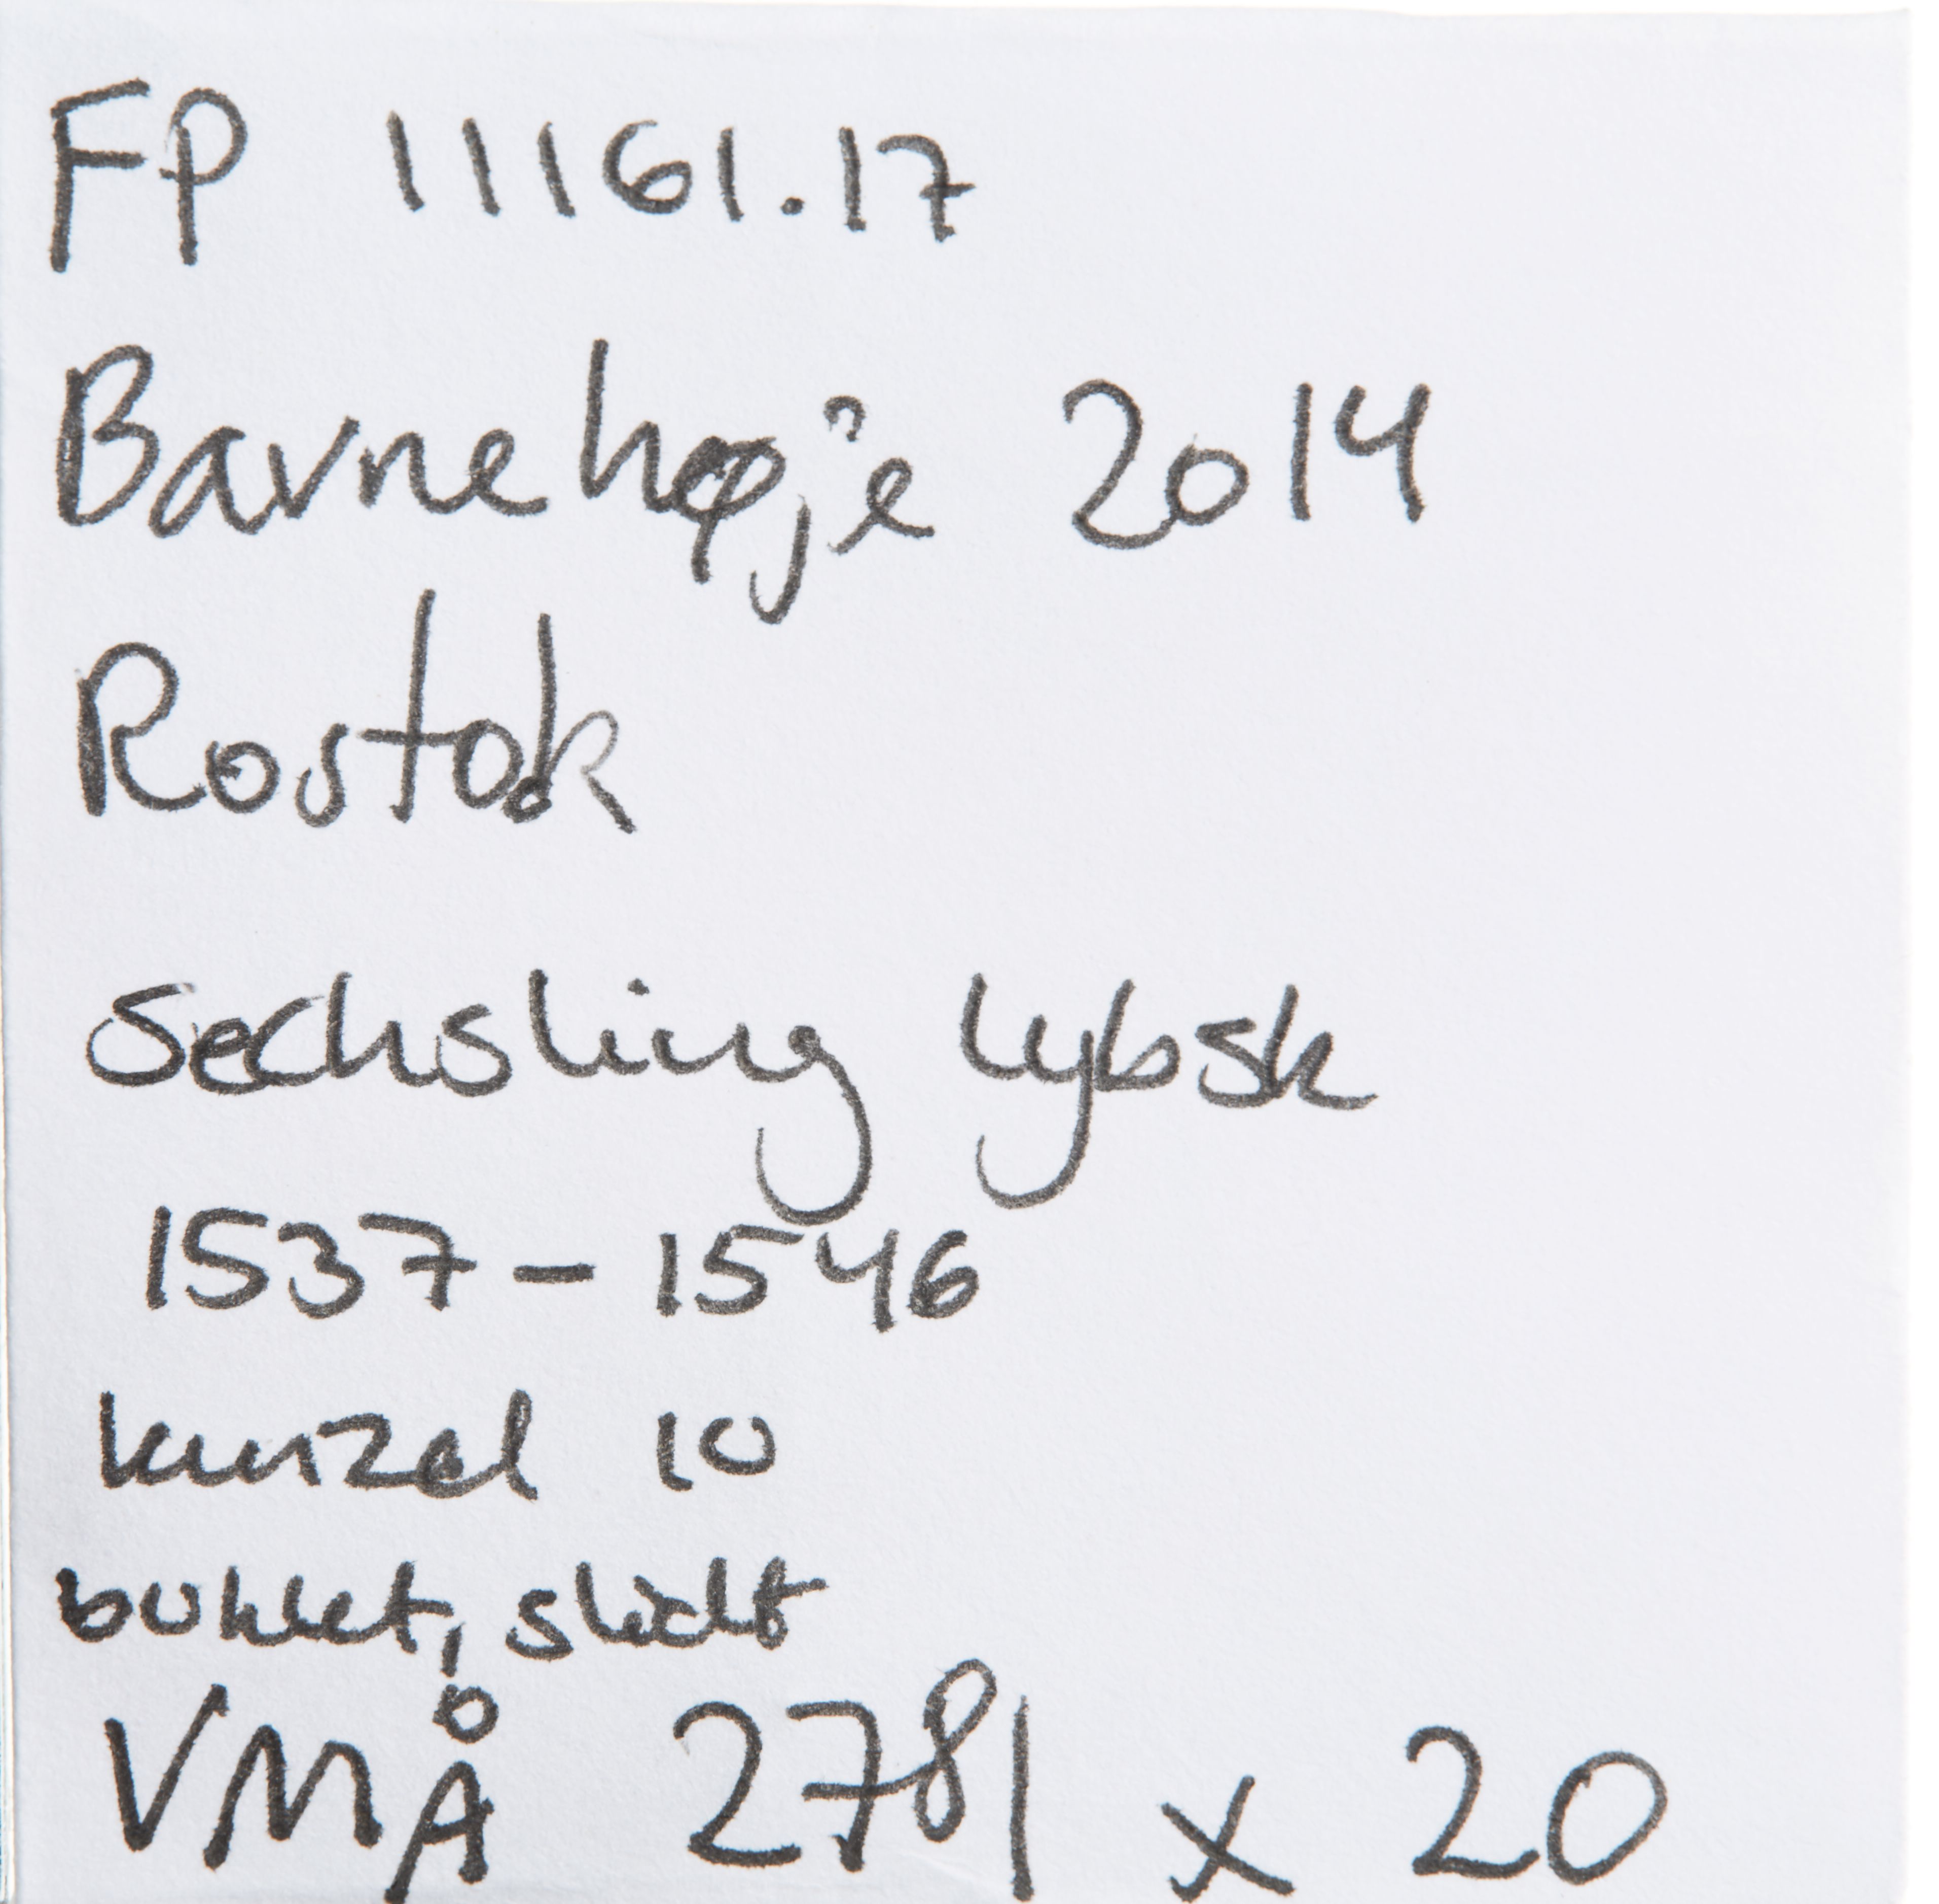 FP 11161.17
Bavnehøje 2014
Rostok
Sechsling lybsk
1537-1546
kunzel 10
bukket, slidt
VMÅ 2781 x 20